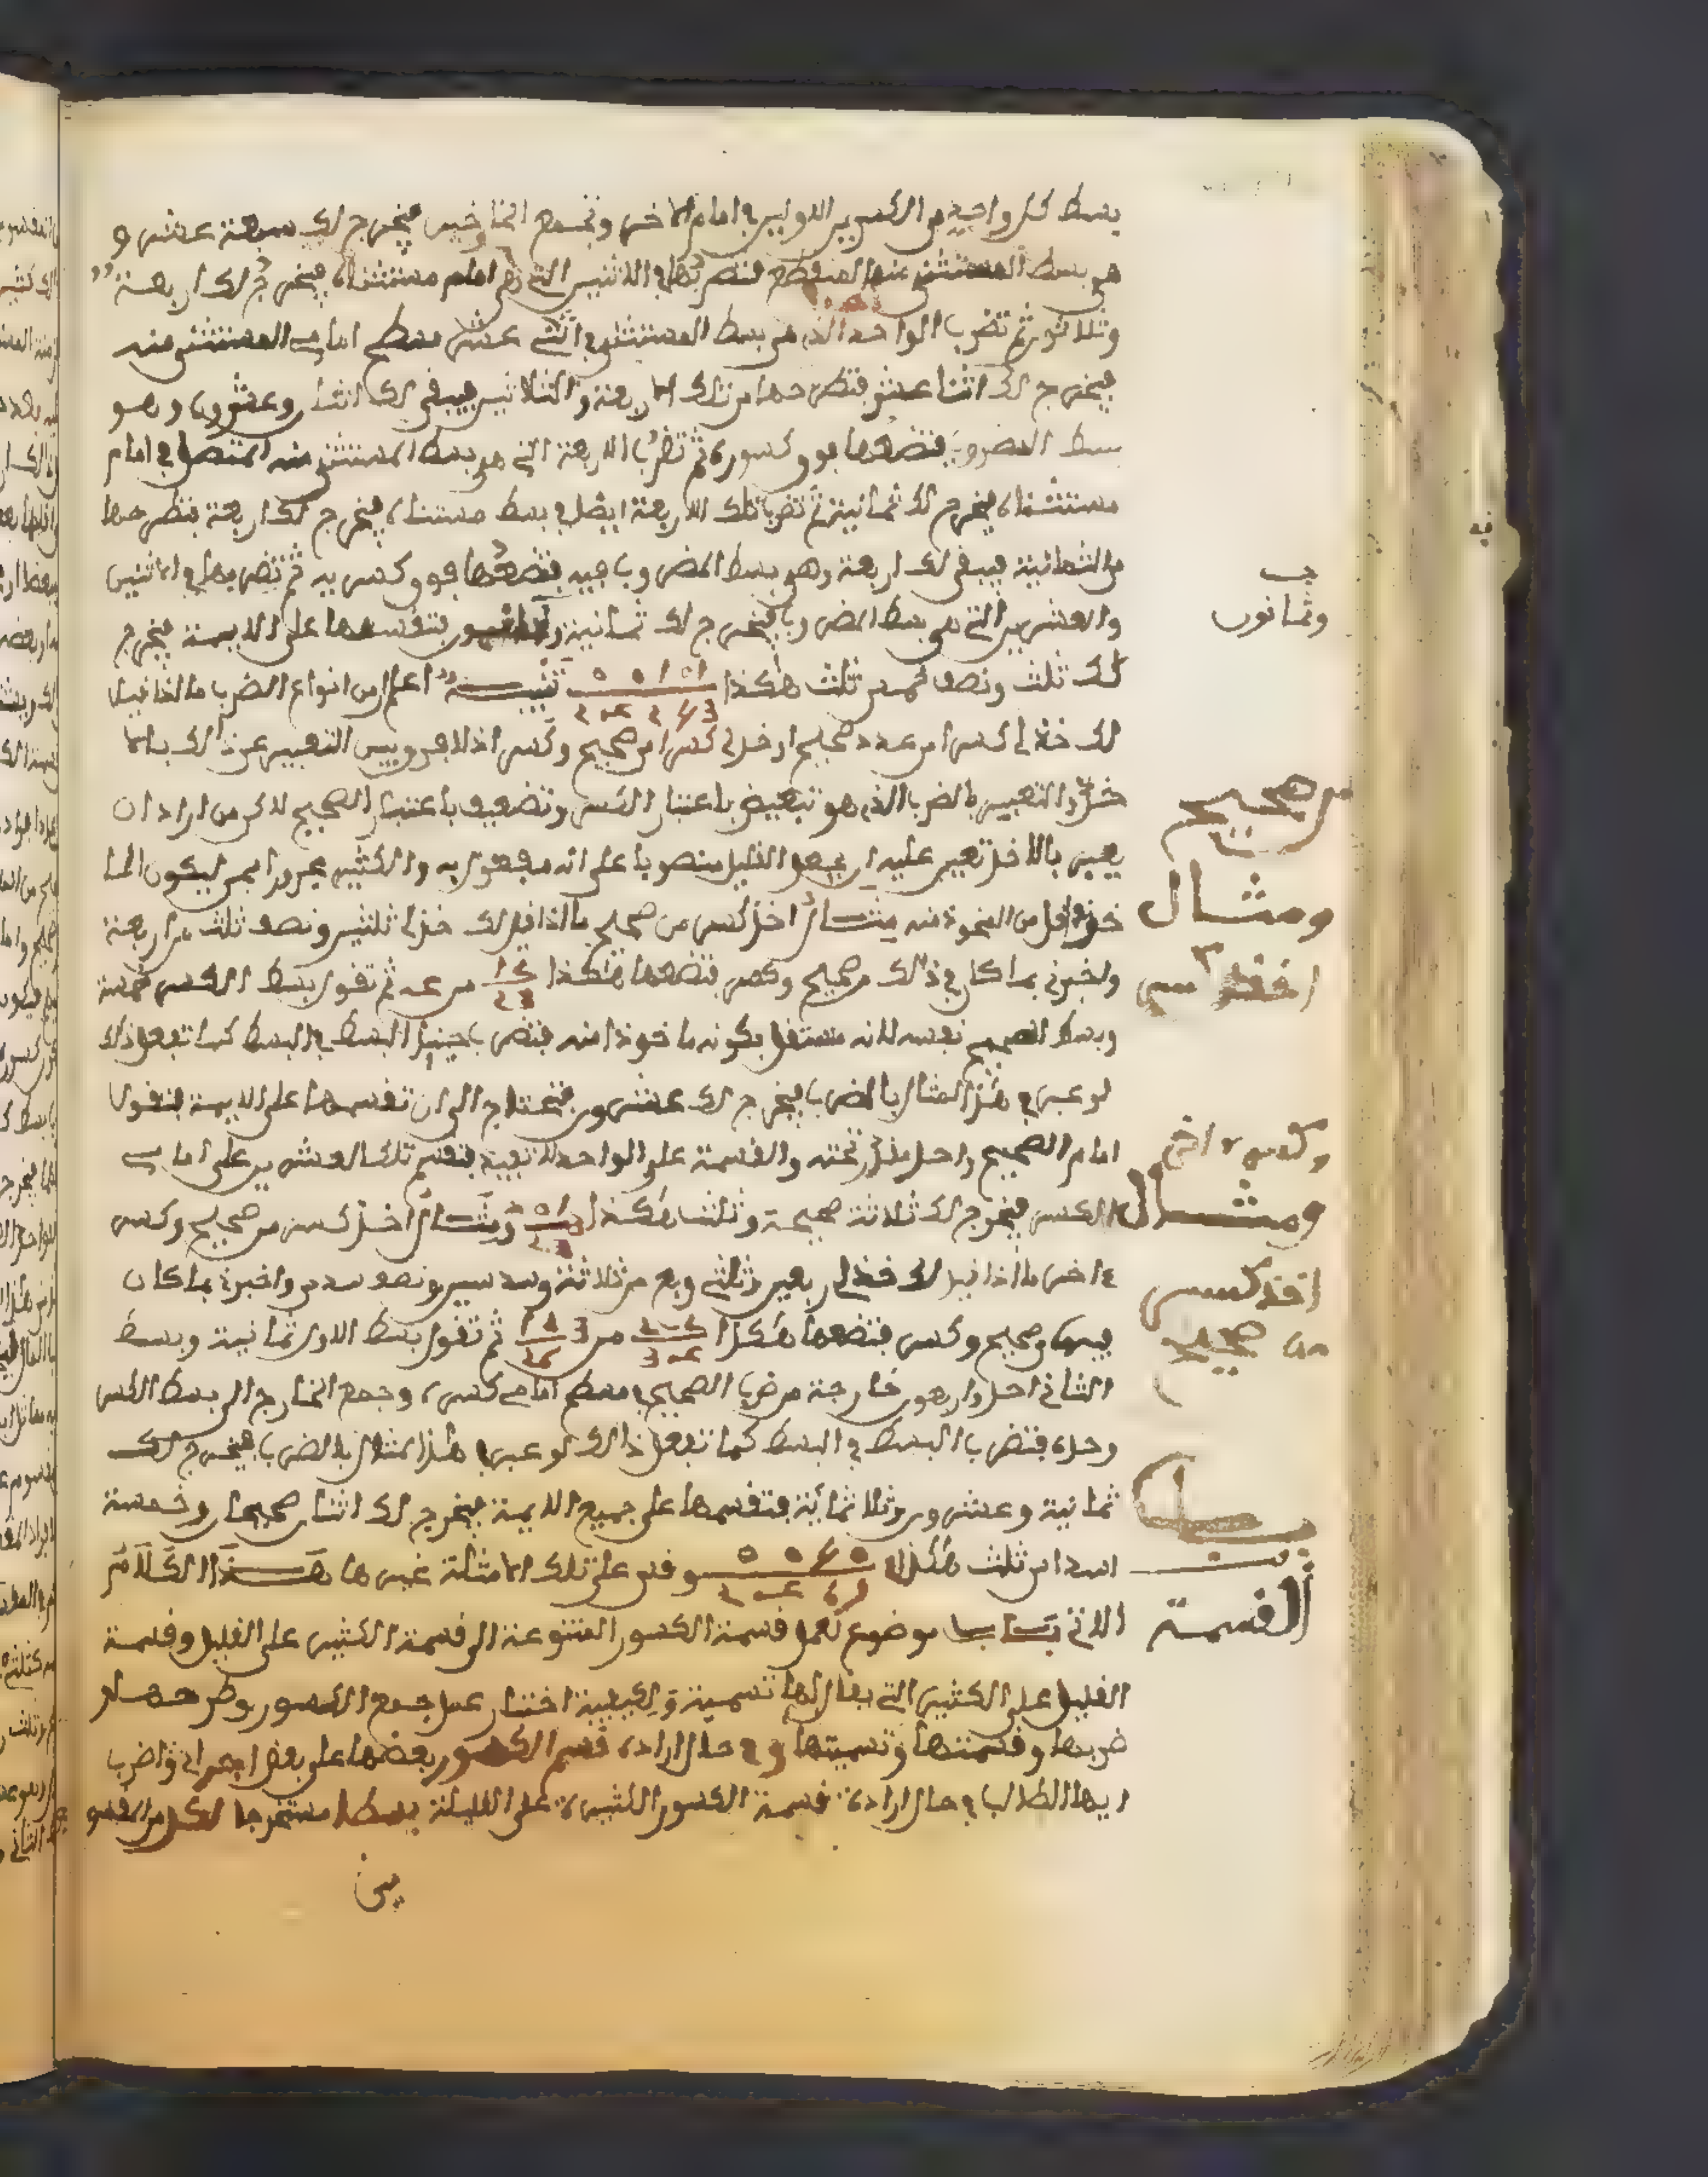 بسط كل واحد من الكسرين الاولين في امام الاخر وتجمع الخارجين فيخرج لك سبعة عشر و
هي بسط المستثنى منه المنقطع فتضربها في الاثنين التي هي امام مستثناه فيخرج لك اربعة
وثلاثون ثم تضرب الواحد الذي هو بسط المستثنى في اثني عشر مسطح امامي المستثنى منه
فيخرج لك اثنا عشر فتطرحها من تلك الاربعة والثلاثين فيبقى لك اثنان وعشرون وهو
بسط المضروب فتضعها فوق كسوره ثم تضرب الاربعة التي هي بسط المستثنى منه المتصل في امام
مستثناه فيخرج لك ثمانية ثم تضرب تلك الاربعة ايضا في بسط مستثناه فيخرج لك اربعة فتطرحها
من الثمانية فيبقى لك اربعة وهو بسط المضروب فيه فتضعها فوق كسريه ثم تضربها في الاثنين
والعشرين التي هي بسط المضروب فيخرج لك ثمانية وثمانون فتقسمها على الايمة فيخرج
وثمانون
لك ثلث ونصف خمس ثلث هكذا تنبيه اعلم ان من انواع الضرب ما اذا قيل
لك خذ لي كسرا من عدد صحيح او خذ لي كسرا من صحيح وكسر اذ لا فرق بين التعبير عن ذلك بالا
خذ والتعبير بالضرب الذي هو تبعيض باعتبار الكسر وتضعيف باعتبار الصحيح لاكن من اراد ان
يعبر بالاخذ تعين عليه ان يجعل القليل منصوبا على انه مفعول به والكثير مجرورا بمن ليكون الما
خوذ اقل من الماخوذ منه مثال اخذ كسر من صحيح ما اذا قيل لك خذ لي ثلثين ونصف ثلث من اربعة
ومثال
اخذ كسر
من صحيح
واخبرني بما كان في ذلك من صحيح وكسر فتضعها هكذا من ثم تقول بسط الكسر خمسة
وبسط الصحيح نفسه لانه مستقل بكونه ماخوذا منه فتضرب حينئذ البسط في البسط كما تفعل ذلك
لو عبر في هذا المثال بالضرب فيخرج لك عشرون فتحتاج الى ان تقسمها على الايمة فتقول
امام الصحيح واحد منزل تحته والقسمة على الواحد لا تفيد فتقسم تلك العشرين على امامي
الكسر فيخرج لك ثلاثة صحيحة وثلث هكذا ومثال اخذ كسر من صحيح وكسر
ومثال
اخذ كسر
من صحيح
وكسر اخر
ءاخر ما اذا قيل لك خذ لي ربعين وثلثي ربع من ثلاثة وسدسين ونصف سدس واخبرني بما كان
فيها من صحيح وكسر فتضعها هكذا من 3 ثم تقول بسط الاول ثمانية وبسط
الثاني احد واربعون خارجة من ضرب الصحيح في مسطح امامي كسره وجمع الخارج الى بسط الكسر
وحده فتضرب البسط في البسط كما تفعل ذلك لو عبر في هذا المثال بالضرب فيخرج لك
ثمانية وعشرون وثلاثمائة فتقسمها على جميع الايمة فيخرج لك اثنان صحيحان وخمسة
اسداس ثلث هكذا وقس على تلك الامثلة غيرها هذا الكلام
الاتي باب موضوع لعمل قسمة الكسور المتنوعة الى قسمة الكثير على القليل وقسمة
باب
القسمة
القليل على الكثير التي يقال لها تسمية وكيفية اختبار عمل جمع الكسور وطرحها و
ضربها وقسمتها وتسميتها وفي حال ارادة قسم الكسور بعضها على بعض اجعلن واضرب
ايها الطالب في حال ارادة قسمة الكسور الكثيرة على القليلة بسطا مستخرجا لكل من المقسو
مين